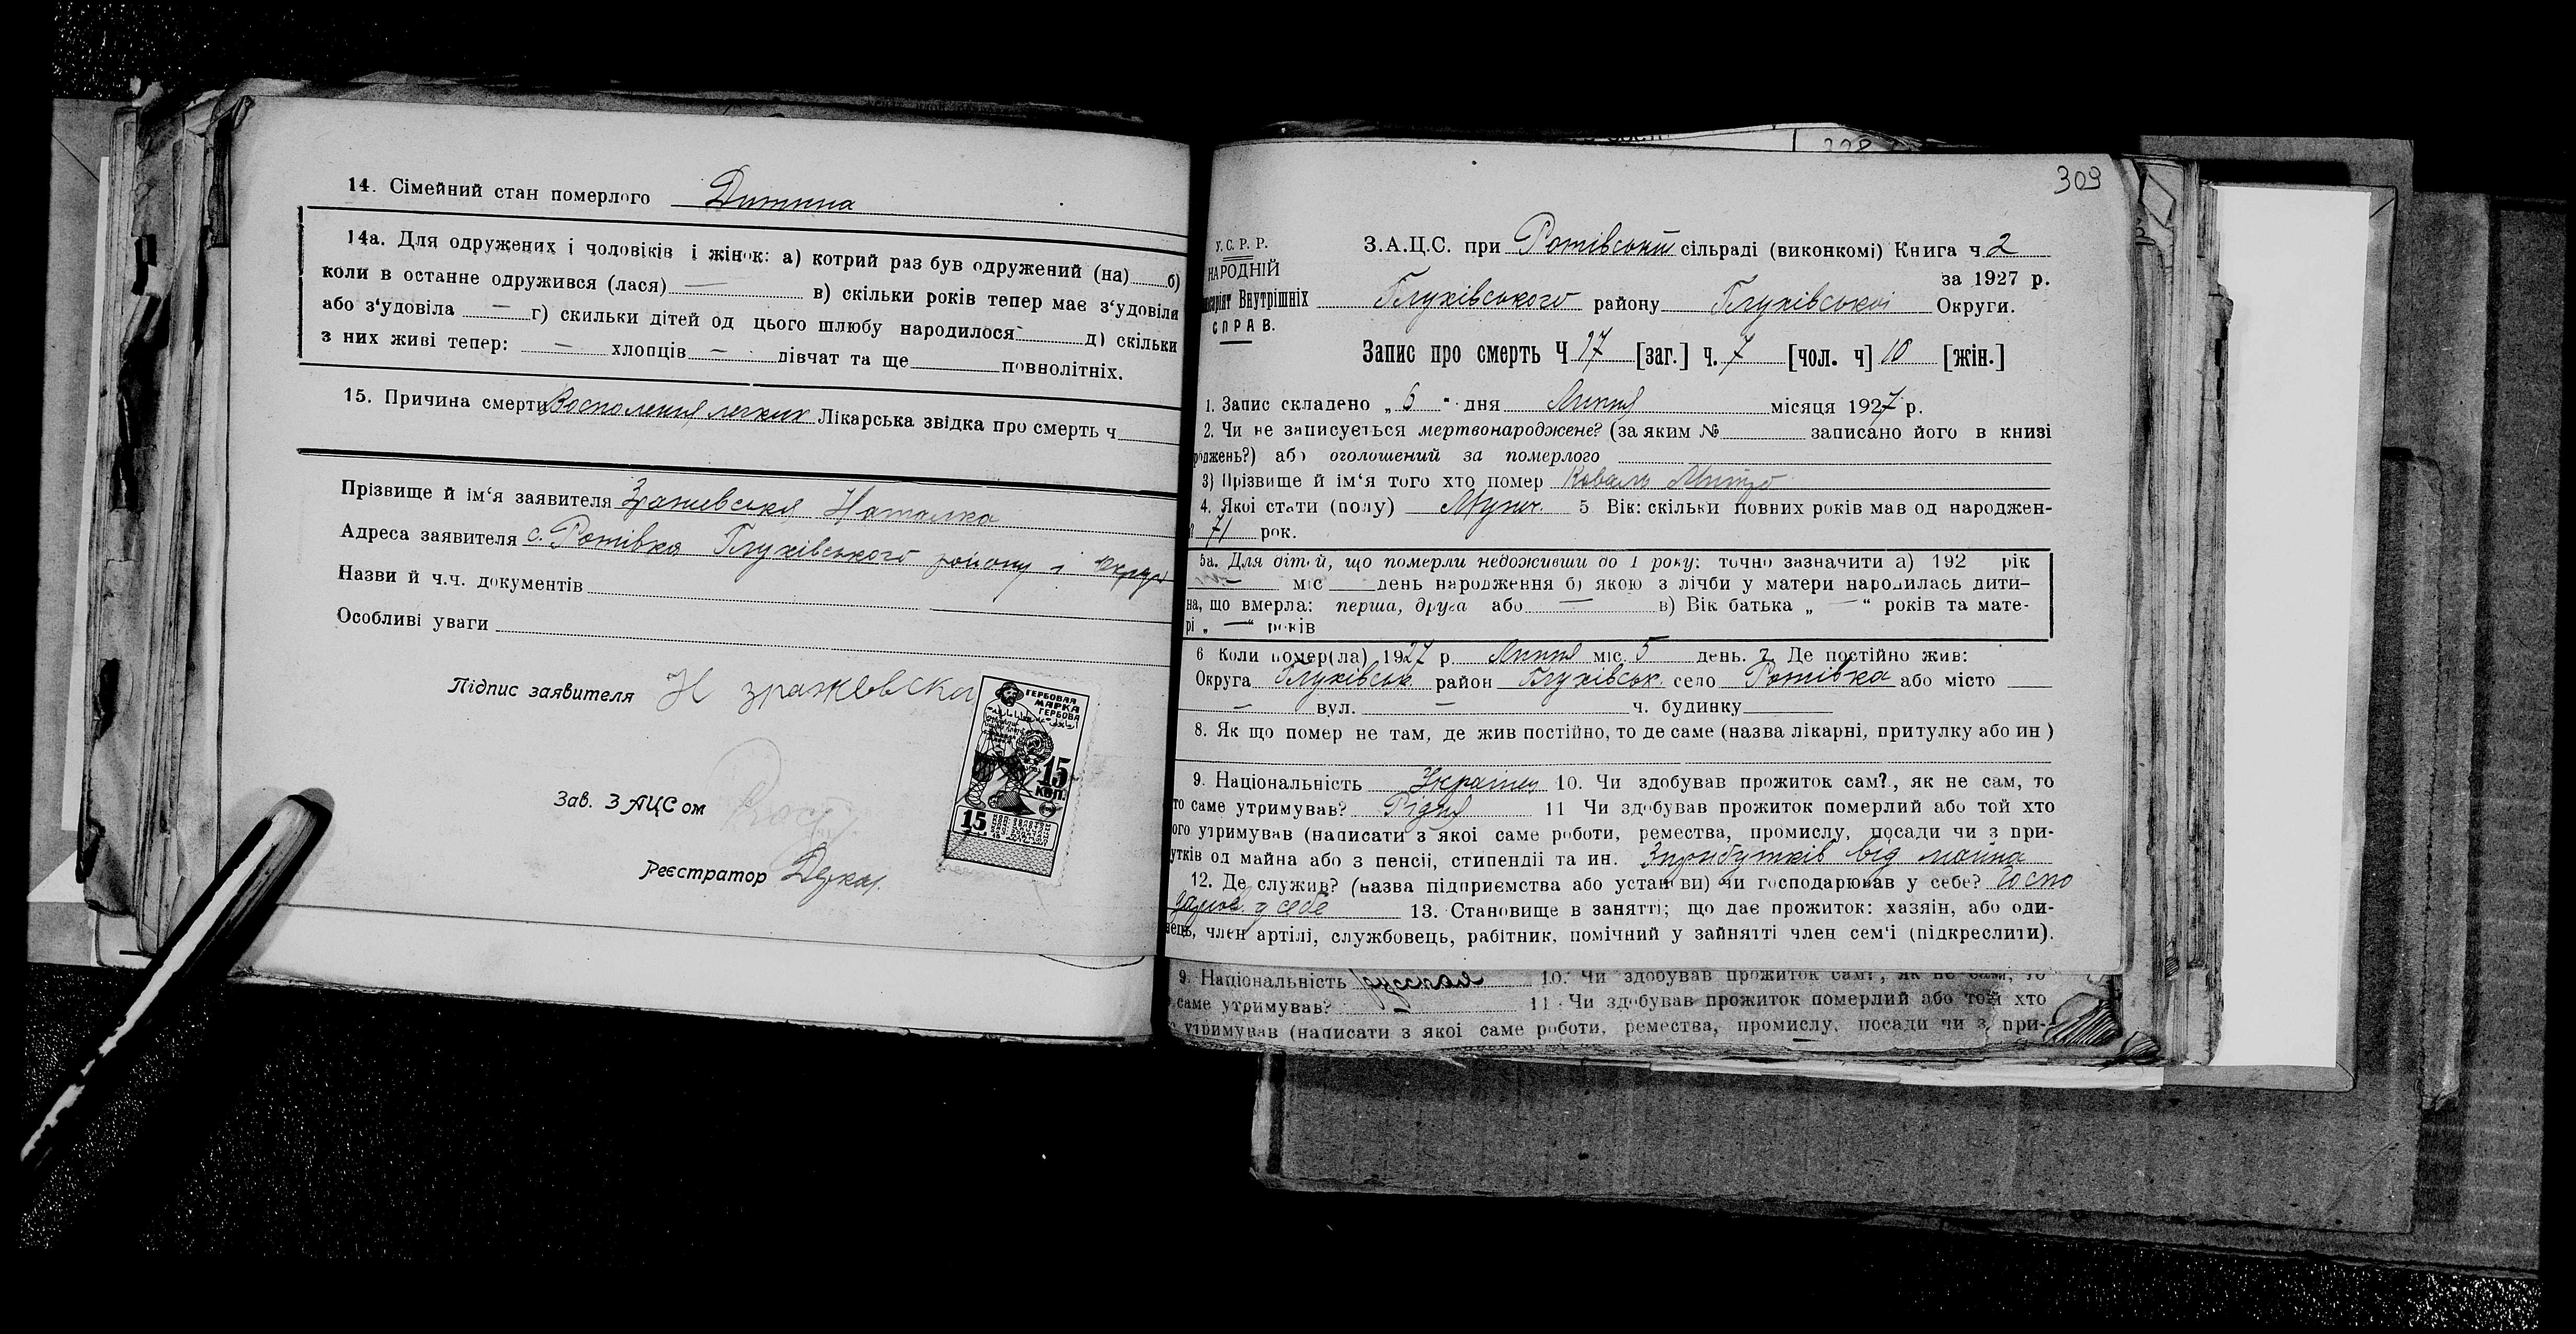 14. Сімейний стан померлого Дитина
14а. Для одружених і чоловіків і жінок: а) котрий раз був одружений (на) б)
коли в останне одружився (лася) — в) скільки років тепер має з‘удовіли
або з‘удовіла — г) скильки дітей од цього шлюбу народилося д) скільки
з них живі тепер: — хлопців — дівчат та ще повнолітніх.
15. Причина смерти Восполения легких Лікарська звідка про смерть ч
Прізвище й ім‘я заявителя Зражевська Наталка
Адреса заявителя с. Ротівка Глухівського району і округи
Назви й ч.ч. документів
Особливі уваги
Підпис заявителя Н зражевска
ГЕРБОВАЯ
МАРКА
ГЕРБОВА
15
КОП.
15
Зав. ЗАЦСом
Реєстратор
309
У.С.Р.Р.
НАРОДНІЙ
Внутрішніх
СПРАВ.
З.А.Ц.С. при Ротівській сільраді (виконкомі) Книга ч 2
за 1927 р.
Глухівського району Глухівської Округи.
Запис про смерть Ч 17 [заг.] ч. 7 [чол. ч] 10 [жін.]
1. Запис складено „ 6 “ дня Липня місяця 1927 р.
2. Чи не записується мертвонароджене? (за яким № записано його в книзі
роджень?) або оголошений за померлого
3) Прізвище й ім‘я того хто помер Коваль Митро
4. Якої стати (полу) Мужч. 5 Вік: скільки повних років мав од народжен-
71 рок.
5а. Для дітей, що померли недоживши до 1 року: точно зазначити а) 192 рік
— міс день народження б) якою з лічби у матери народилась дити-
на, що вмерла: перша, друга або — в) Вік батька „ — “ років та мате-
рі „ — “ років
6 Коли помер(ла) 1927 р. Липня міс. 5 день. 7. Де постійно жив:
Округа Глухівськ. район Глухівськ. село Ротівка або місто —
— вул. — ч. будинку
8. Як що помер не там, де жив постійно, то де саме (назва лікарні, притулку або ин )
9. Національність Українец 10. Чи здобував прожиток сам?, як не сам, то
то саме утримував? Рідня 11 Чи здобував прожиток померлий або той хто
ого утримував (написати з якої саме роботи, ремества, промислу, посади чи з при-
утків од майна або з пенсії, стипендії та ин. З прибутків від майна
12. Де служив? (назва підприємства або установи) чи господарював у себе? Госпо
дарював у себе 13. Становище в занятті; що дає прожиток: хазяін, або оди-
нець, член артілі, службовець, рабітник, помічний у зайнятті член сем‘і (підкреслити).
9. Національність 10. Чи здобував прожиток сам?, як не сам, то
саме утримував? — 11 Чи здобував прожиток померлий або той хто
утримував (написати з якої саме роботи, ремества, промислу, посади чи з при-